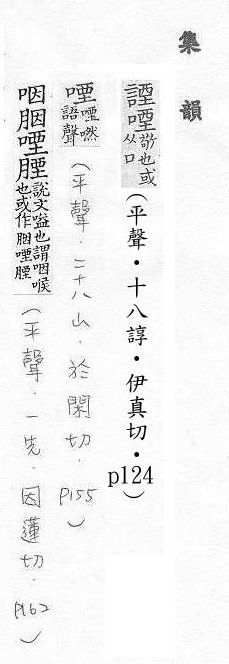 集韻
諲㖶敬也或从口(平聲・十八諄・伊真切・p124)
㖶㖶然語聲(平聲・二十八山・於閑切・p155)
咽胭㖶𦜲說文嗌也謂咽喉也或作胭㖶𦜲(平聲・一先・因蓮切・p162)